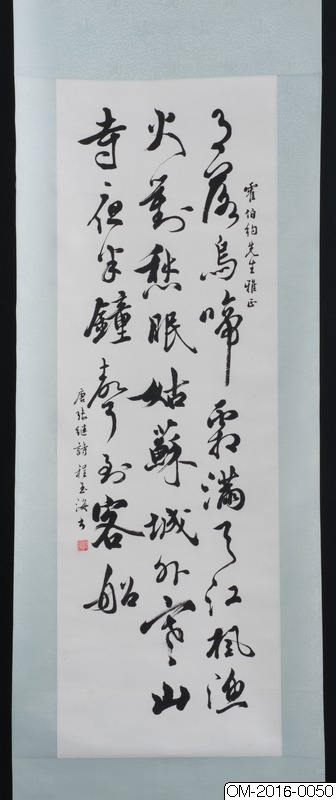 霍伯約先生雅正
月落烏啼霜滿天江楓漁
火對愁眠姑蘇城外寒山
寺夜半鐘聲到客船
唐張继詩程玉海书
OM-2016-0050